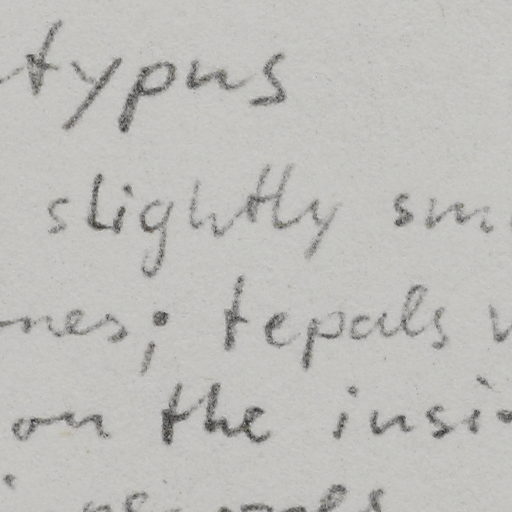 typus
slightly sm
nes; tepals
on the insi